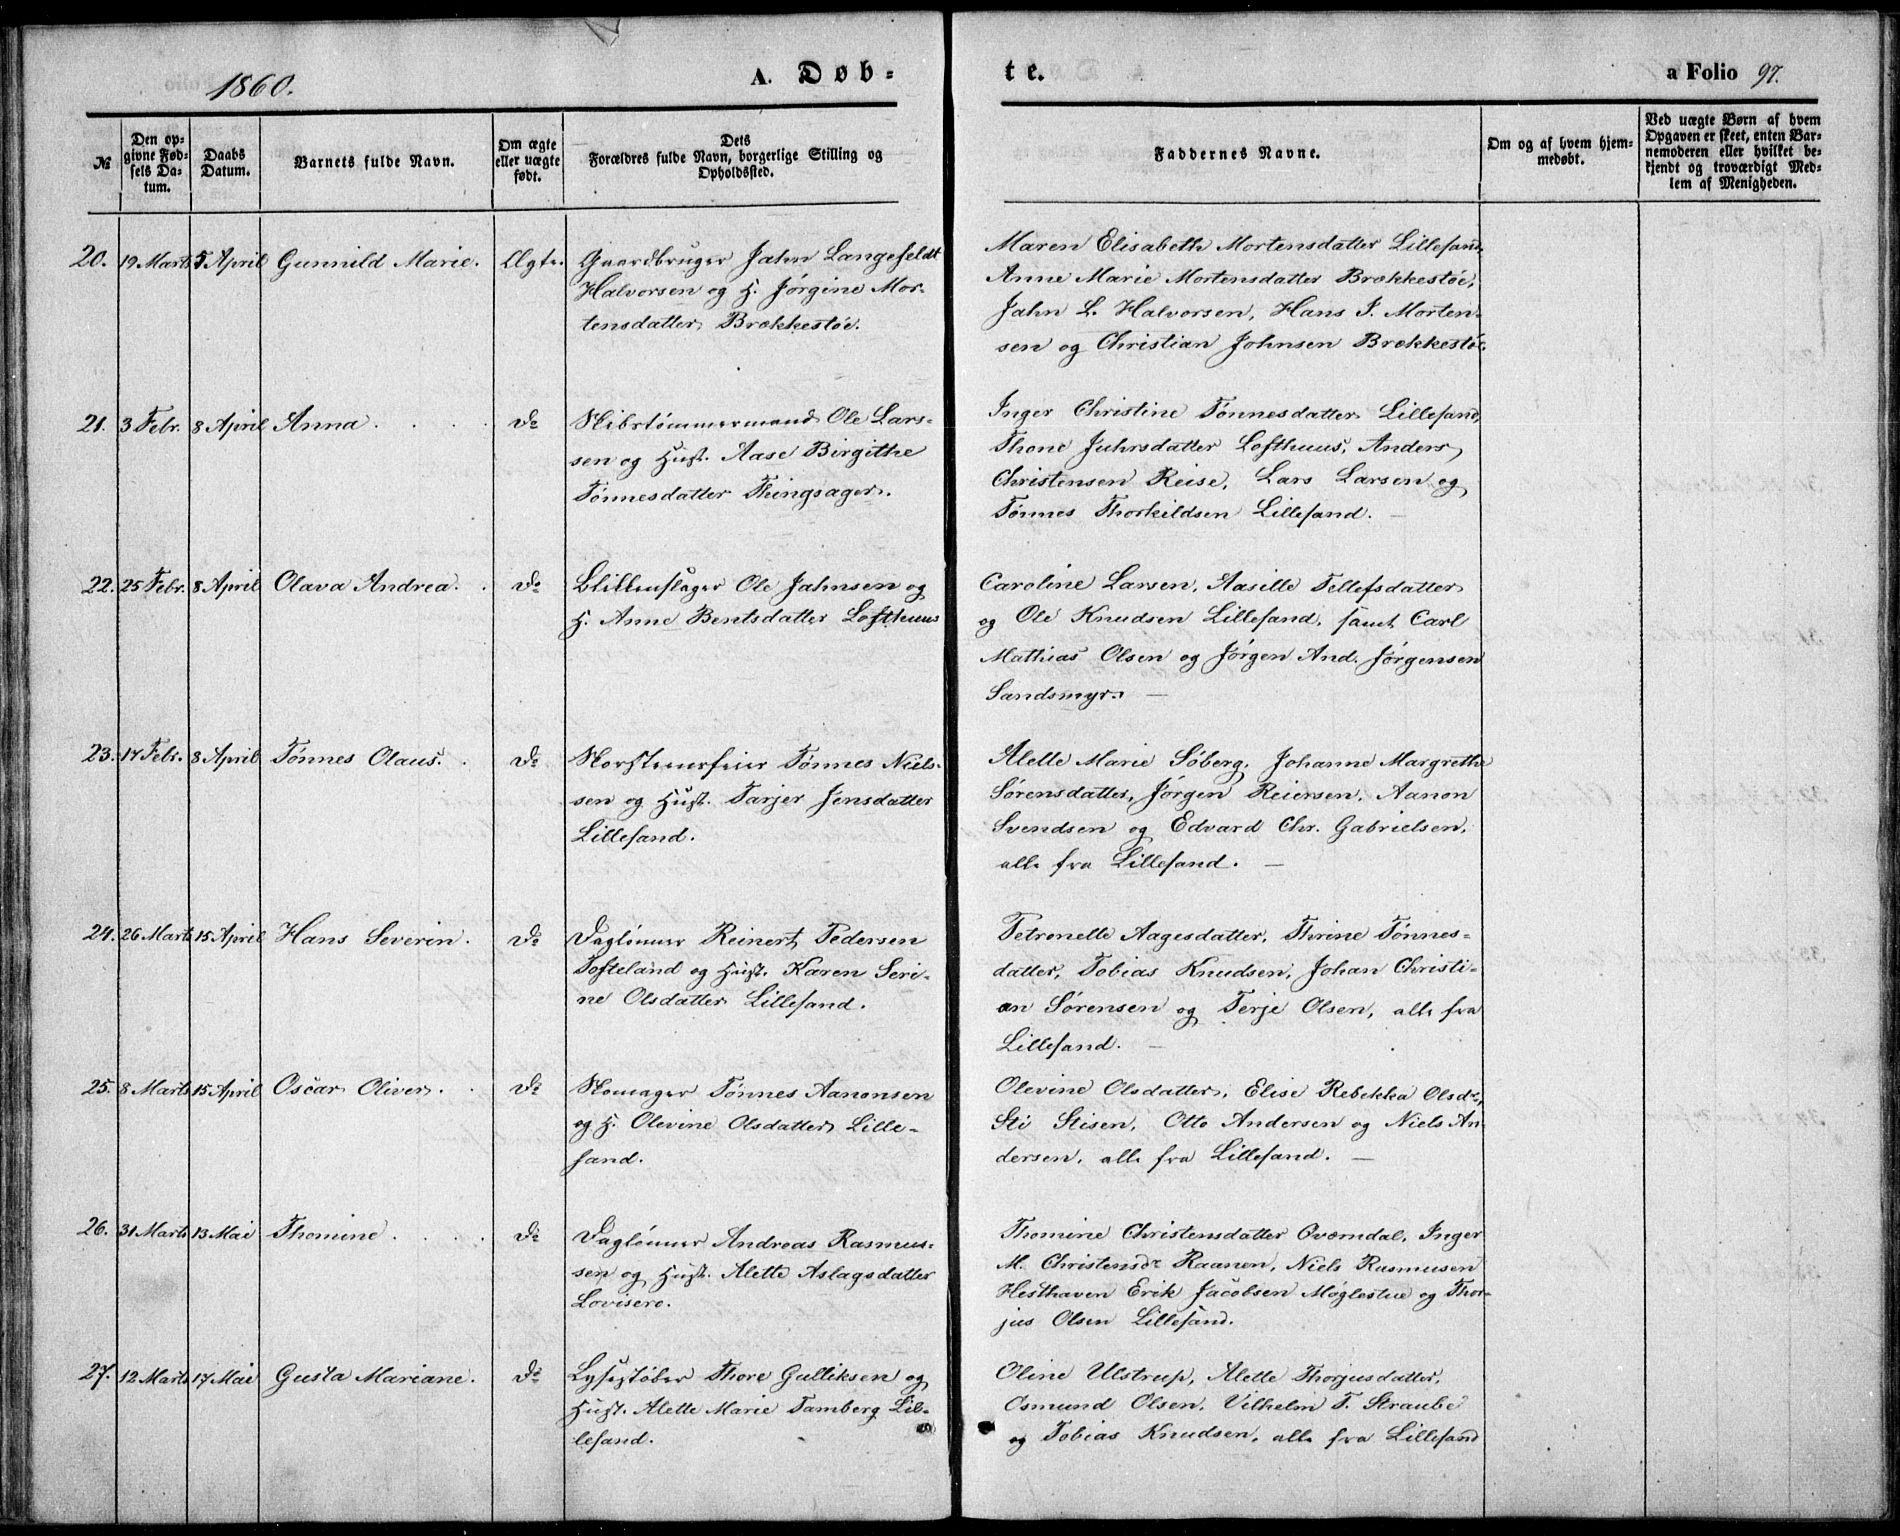 1860.
A. Døb-
te.
a Folio 97.
№
Den op-
givne Fød-
sels Da-
tum.
Daabs
Datum.
Barnets fulde Navn.
Om ægte
eller uægte
født.
Dets
Forældres fulde Navn, borgerlige Stilling og
Opholdssted.
Faddernes Navne.
Om og af hvem hjem-
medøbt.
Ved uægte Børn af hvem
Opgaven er skeet, enten Bar-
nemoderen eller hvilket be-
kjendt og troværdigt Med-
lem af Menigheden.
20. 19 Marts 5 April Gunnild Marie. Ægte. Gaardbruger Jahn Langefeldt
Halvorsen og H. Jørgine Mor-
tensdatter Brækkestøe.
Maren Elisabeth Mortensdatter Lillesand,
Anne Marie Mortensdatter Brækkestøe,
Jahn L. Halvorsen, Hans J. Morten-
sen og Christian Johnsen Brækkestøe.
21. 3 Febr. 8 April Anna. Do Skibstømmermand Ole Lars-
sen og Hust. Aase Birgithe
Tønnesdatter Thingsager.
Inger Christine Tønnesdatter Lillesand,
Thone Juhrsdatter Lofthuus, Anders
Christensen Reise, Lars Larsen og
Tønnes Thorkildsen Lillesand. —
22. 25 Febr. 8 April Olava Andrea. Do Blikkenslager Ole Jahnsen og
H. Anne Bentsdatter Lofthuus
Caroline Larsen, Aasille Tellefsdatter
og Ole Knudsen Lillesand, samt Carl
Mathias Olsen og Jørgen And. Jørgensen
Sandsmyr. —
23. 17 Febr. 8 April Tønnes Olaus. Do Skorsteensfeier Tønnes Niels-
sen og Hust. Tarjer Jensdatter
Lillesand.
Alette Marie Søberg, Johanne Margrethe
Sørensdatter, Jørgen Reiersen, Aanon
Svendsen og Edvard Chr. Gabrielsen,
alle fra Lillesand. —
24. 26 Marts 15 April Hans Severin. Do Daglønner Reinert Pedersen
Tofteland og Hust. Karen Seri-
ne Olsdatter Lillesand.
Petronelle Aagesdatter, Thrine Tønnes-
datter, Tobias Knudsen, Johan Christi-
an Sørensen og Terje Olsen, alle fra
Lillesand. —
25. 8 Marts 15 April Oscar Oliver. Do Skomager Tønnes Aanonsen
og H. Olevine Olsdatter Lille-
sand.
Olevine Olsdatter, Elise Rebekka Olsdr,
Sti Stisen, Otto Andersen og Niels An-
dersen, alle fra Lillesand. —
26. 31 Marts 13 Mai Thomine. Do Daglønner Andreas Rasmus-
sen og Hust. Alette Aslagsdatter
Lovisero.
Thomine Christensdatter Oværndal, Inger
M. Christensdr Raanen, Niels Rasmusen
Hesthaven Erik Jacobsen Møglestue og Thor-
jus Olsen Lillesand.
27. 12 Marts 17 Mai Gusta Mariane. Do Lysestøber Thore Gulliksen og
Hust. Alette Marie Tamberg Lil-
lesand.
Oline Ulstrup, Alette Thorjusdatter,
Osmund Olsen, Vilhelm T. Straube
og Tobias Knudsen, alle fra Lillesand